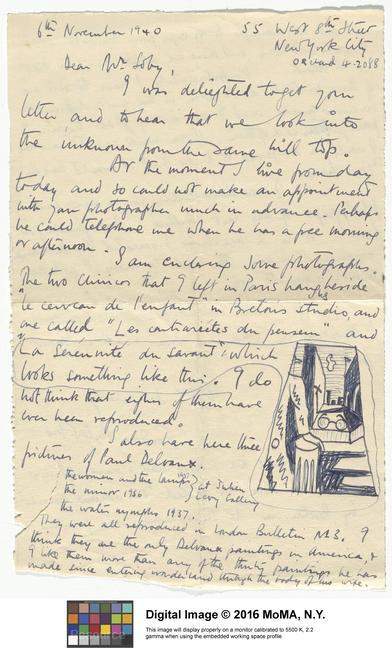 6th November 1940
55 West 8th Street
New York City
Orchard 4-2088
Dear Mr Soby,
I was delighted to get your
letter and to hear that we look into
the unknown from the same hill top.
At the moment I live from day
to day and so could not make an appointment
with your photographer much in advance. Perhaps
he could telephone me when he has a free morning
or afternoon.
I am enclosing some photographs.
The two Chiricos that I left in Paris hang beside
"le cerveau de l'enfant" in Breton's studio, and
are called "Les contrariétés du penseur" and
"La Serenite du Savant", which
looks something like this. I do
not think that either of them have
ever been reproduced.
I also have here three
pictures of Paul Delvaux.
the women and the lamps
the mirror 1936
at Julien
Levy Gallery
the water nymphs 1937.
They were all reproduced in London Bulletin No 3. I
think they are the only Delvaux paintings in America, &
I like them more than any of the thirty paintings he has
made since entering wonderland through the body of his wife.
Digital Image © 2016 MoMA, N.Y.
This image will display properly on a monitor calibrated to 5500 K, 2.2
gamma when using the embedded working space profile